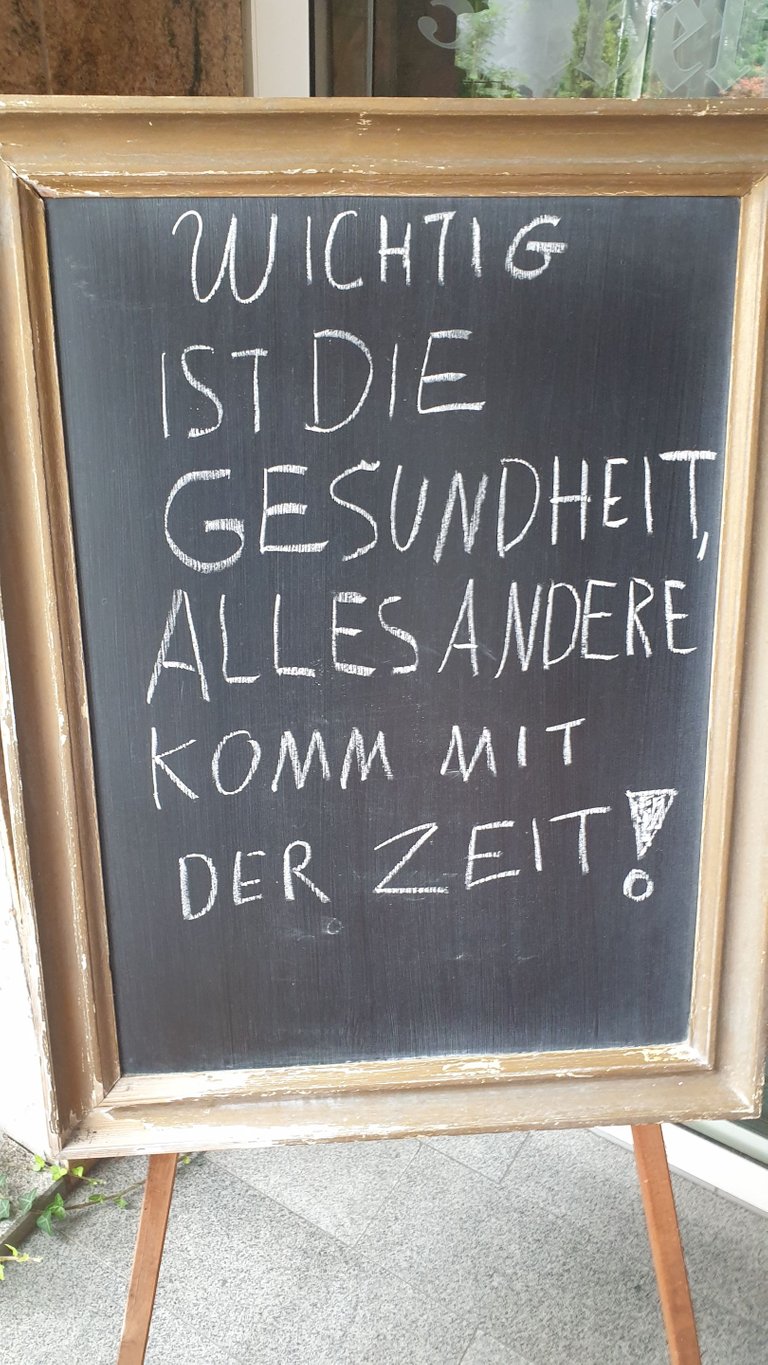 WICHTIG
IST DIE
GESUNDHEIT,
ALLES ANDERE
KOMM MIT
DER ZEIT!